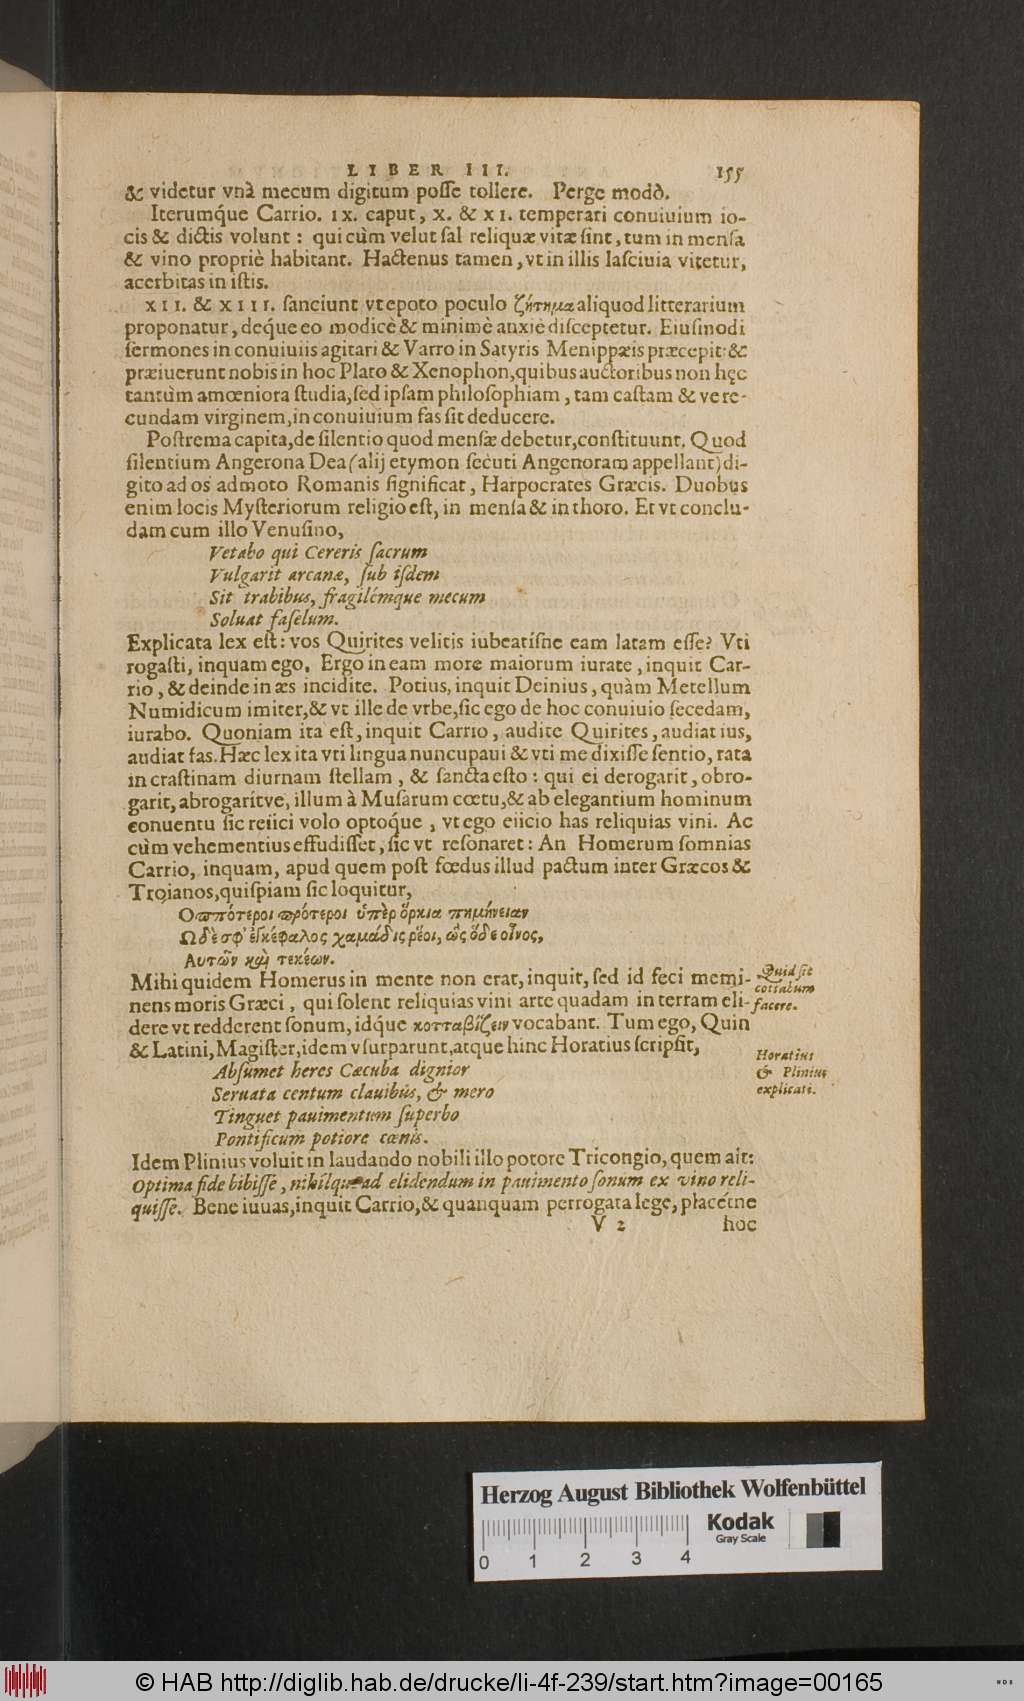 LIBER III. 155
& videtur vnà mecum digitum posse tollere. Perge modò.
Iterumq́ue Carrio. IX. caput, X. & XI. temperari conuiuium io-
cis & dictis volunt : qui cùm velut sal reliquæ vitæ sint, tum in mensa
& vino propriè habitant. Hactenus tamen, vt in illis lasciuia vitetur,
acerbitas in istis.
XII. & XIII. sanciunt vt epoto poculo ζήτημα aliquod litterarium
proponatur, deq́ue eo modicè & minimè anxiè disceptetur. Eiusmodi
sermones in conuiuiis agitari & Varro in Satyris Menippæis præcepit: &
præiuerunt nobis in hoc Plato & Xenophon, quibus auctoribus non hęc
tantùm amœniora studia, sed ipsam philosophiam, tam castam & vere-
cundam virginem, in conuiuium fas sit deducere.
Postrema capita, de silentio quod mensæ debetur, constituunt. Quod
silentium Angerona Dea (alij etymon secuti Angenoram appellant) di-
gito ad os admoto Romanis significat, Harpocrates Græcis. Duobus
enim locis Mysteriorum religio est, in mensa & in thoro. Et vt conclu-
dam cum illo Venusino,
Vetabo qui Cereris sacrum
Vulgarit arcanæ, sub isdem
Sit trabibus, fragilémque mecum
Soluat faselum.
Explicata lex est: vos Quirites velitis iubeatísne eam latam esse? Vti
rogasti, inquam ego. Ergo in eam more maiorum iurate, inquit Car-
rio, & deinde in æs incidite. Potius, inquit Deinius, quàm Metellum
Numidicum imiter, & vt ille de vrbe, sic ego de hoc conuiuio secedam,
iurabo. Quoniam ita est, inquit Carrio, audite Quirites, audiat ius,
audiat fas. Hæc lex ita vti lingua nuncupaui & vti me dixisse sentio, rata
in crastinam diurnam stellam, & sancta esto : qui ei derogarit, obro-
garit, abrogarítve, illum à Musarum cœtu, & ab elegantium hominum
conuentu sic reiici volo optoq́ue, vt ego eiicio has reliquias vini. Ac
cùm vehementius effudisset, sic vt resonaret: An Homerum somnias
Carrio, inquam, apud quem post fœdus illud pactum inter Græcos &
Troianos, quispiam sic loquitur,
Οππότεροι πρότεροι ὑπὲρ ὅρκια πημήνειαν
Ωδὲ σφ' ἐγκέφαλος χαμάδις ῥέοι, ὡς ὅδε οἶνος,
Αυτῶν καὶ τεκέων.
Mihi quidem Homerus in mente non erat, inquit, sed id feci memi-
nens moris Græci, qui solent reliquias vini arte quadam in terram eli-
dere vt redderent sonum, idq́ue κοτταβίζειν vocabant. Tum ego, Quin
& Latini, Magister, idem vsurparunt, atque hinc Horatius scripsit,
Quid sit
cottabum
facere.
Horatius
& Plinius
explicati.
Absumet heres Cæcuba dignior
Seruata centum clauibus, & mero
Tinguet pauimentum superbo
Pontificum potiore cœnis.
Idem Plinius voluit in laudando nobili illo potore Tricongio, quem ait:
Optima fide bibisse, nihilque ad elidendum in pauimento sonum ex vino reli-
quisse. Bene iuuas, inquit Carrio, & quanquam perrogata lege, placétne
V 2 hoc
Herzog August Bibliothek Wolfenbüttel
Kodak
Gray Scale
0 1 2 3 4
© HAB http://diglib.hab.de/drucke/li-4f-239/start.htm?image=00165